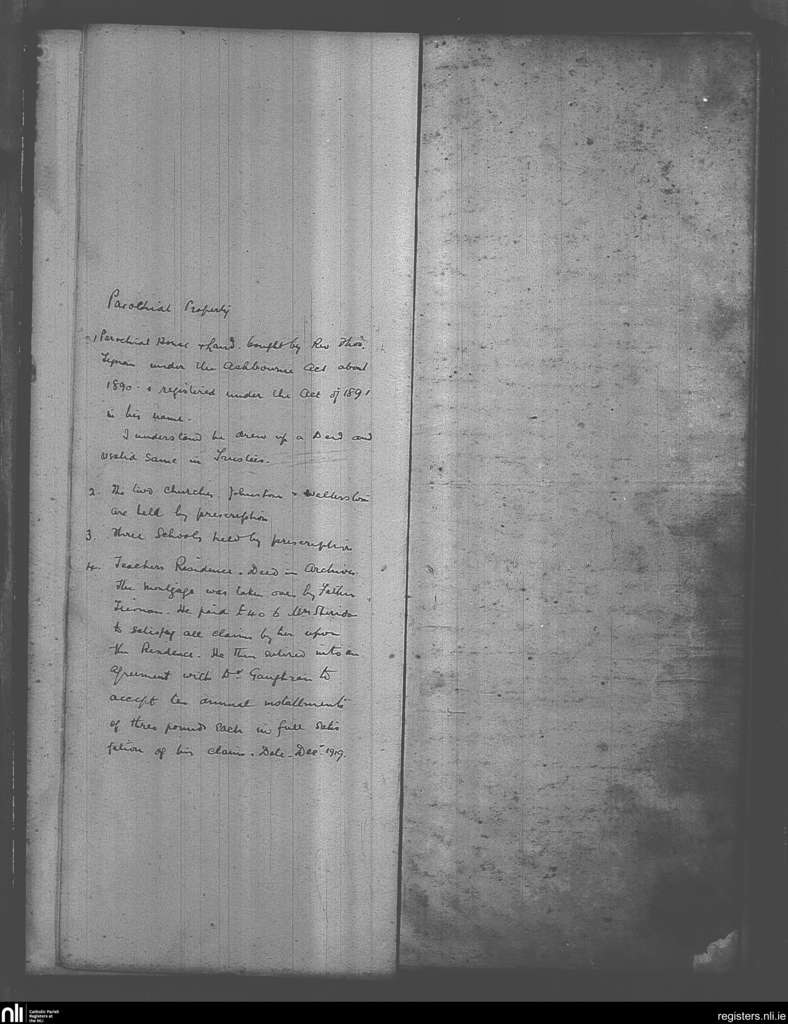 Parochial Property
1 Parochial House & Land bought by Rev Thos.
under the Ashbourne Act about
1890 & registered under the Act of 1891
in his name.
I understand he drew up a Deed and
same in Trustees.
2. The two churches Johnstown & Walterstown
are held by prescription
3. Three Schools held by prescription
4. Teachers Residence. Deed in Archives.
The mortgage was taken over by Father
He paid £40 to Mrs Sheridan
to satisfy all claims by her upon
the Residence. He then entered into an
agreement with Dr Gaughran to
accept ten annual installments
of three pounds each in full satis
faction of his claim. Date - Dec 1919.
nli
Catholic Parish
Registers at
the NLI
registers.nli.ie